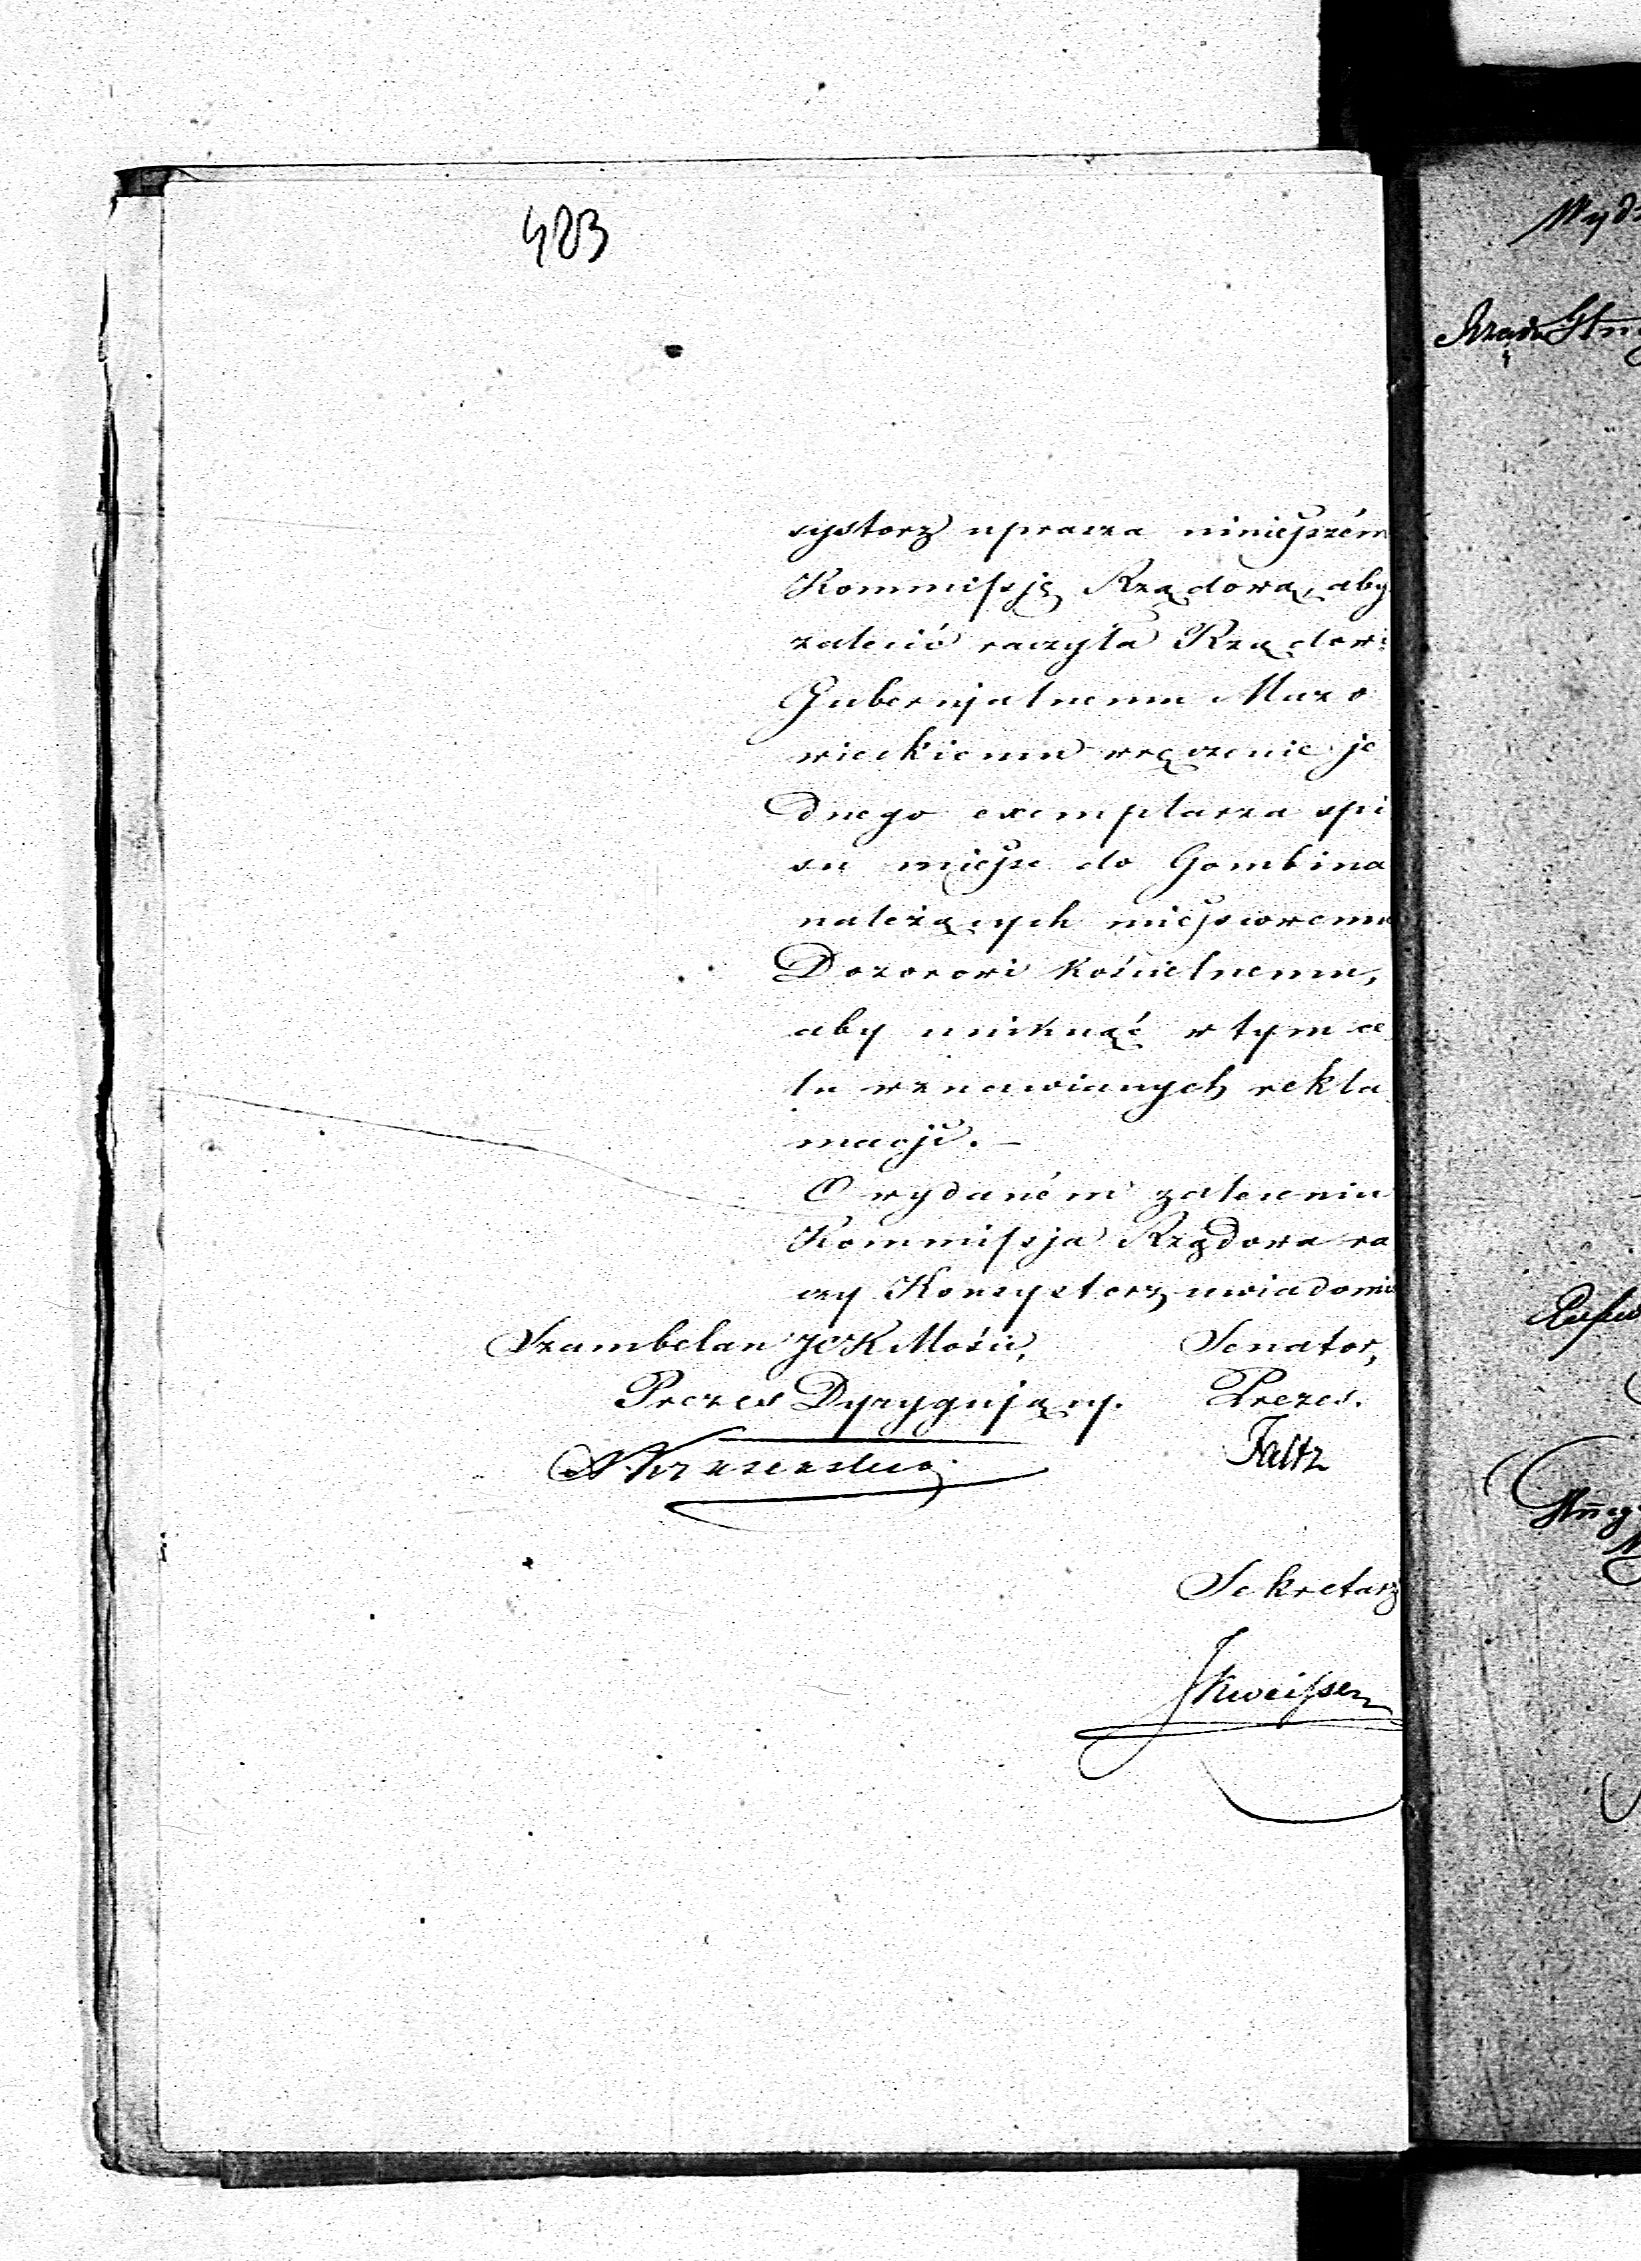 423
systorz uprasza niniejszém
Kommissję Rządową, aby
zalecić raczyła Rządowi
Gubernjalnemu Mazo
wieckiemu wręczenie je
dnego exemplarza spi
su miejsc do Gombina
należących miejscowemu
Dozorowi kościelnemu,
aby uniknąć w tym ce
lu wznawianych rekla
macji. —
O wydaném zaleceniu
Kommissja Rządowa ra
czy Konsystorz uwiadomić
Szambelan JCK Mości, Senator,
Prezes Dyrygujący. Prezes.
Faltz
Sekretarz